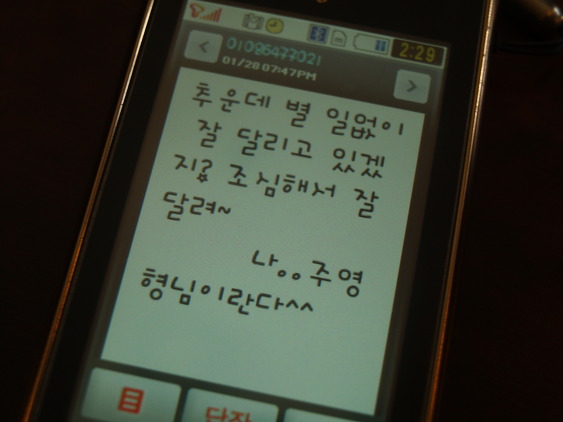 2:29
01086477021
01/28 07:47PM
추운데 별 일없이
잘 달리고 있겠
지? 조심해서 잘
달려~
나。。주영
형님이란다^^
目